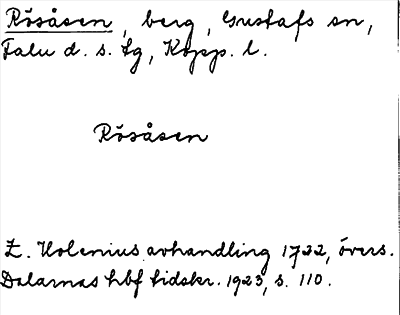 Rösåsen, berg, Gustafs sn,
Falu d. s. tg, Kopp. l.
Rösåsen
E. Holenius avhandling 1722, övers.
Dalarnas hbf tidskr. 1923, s. 110.